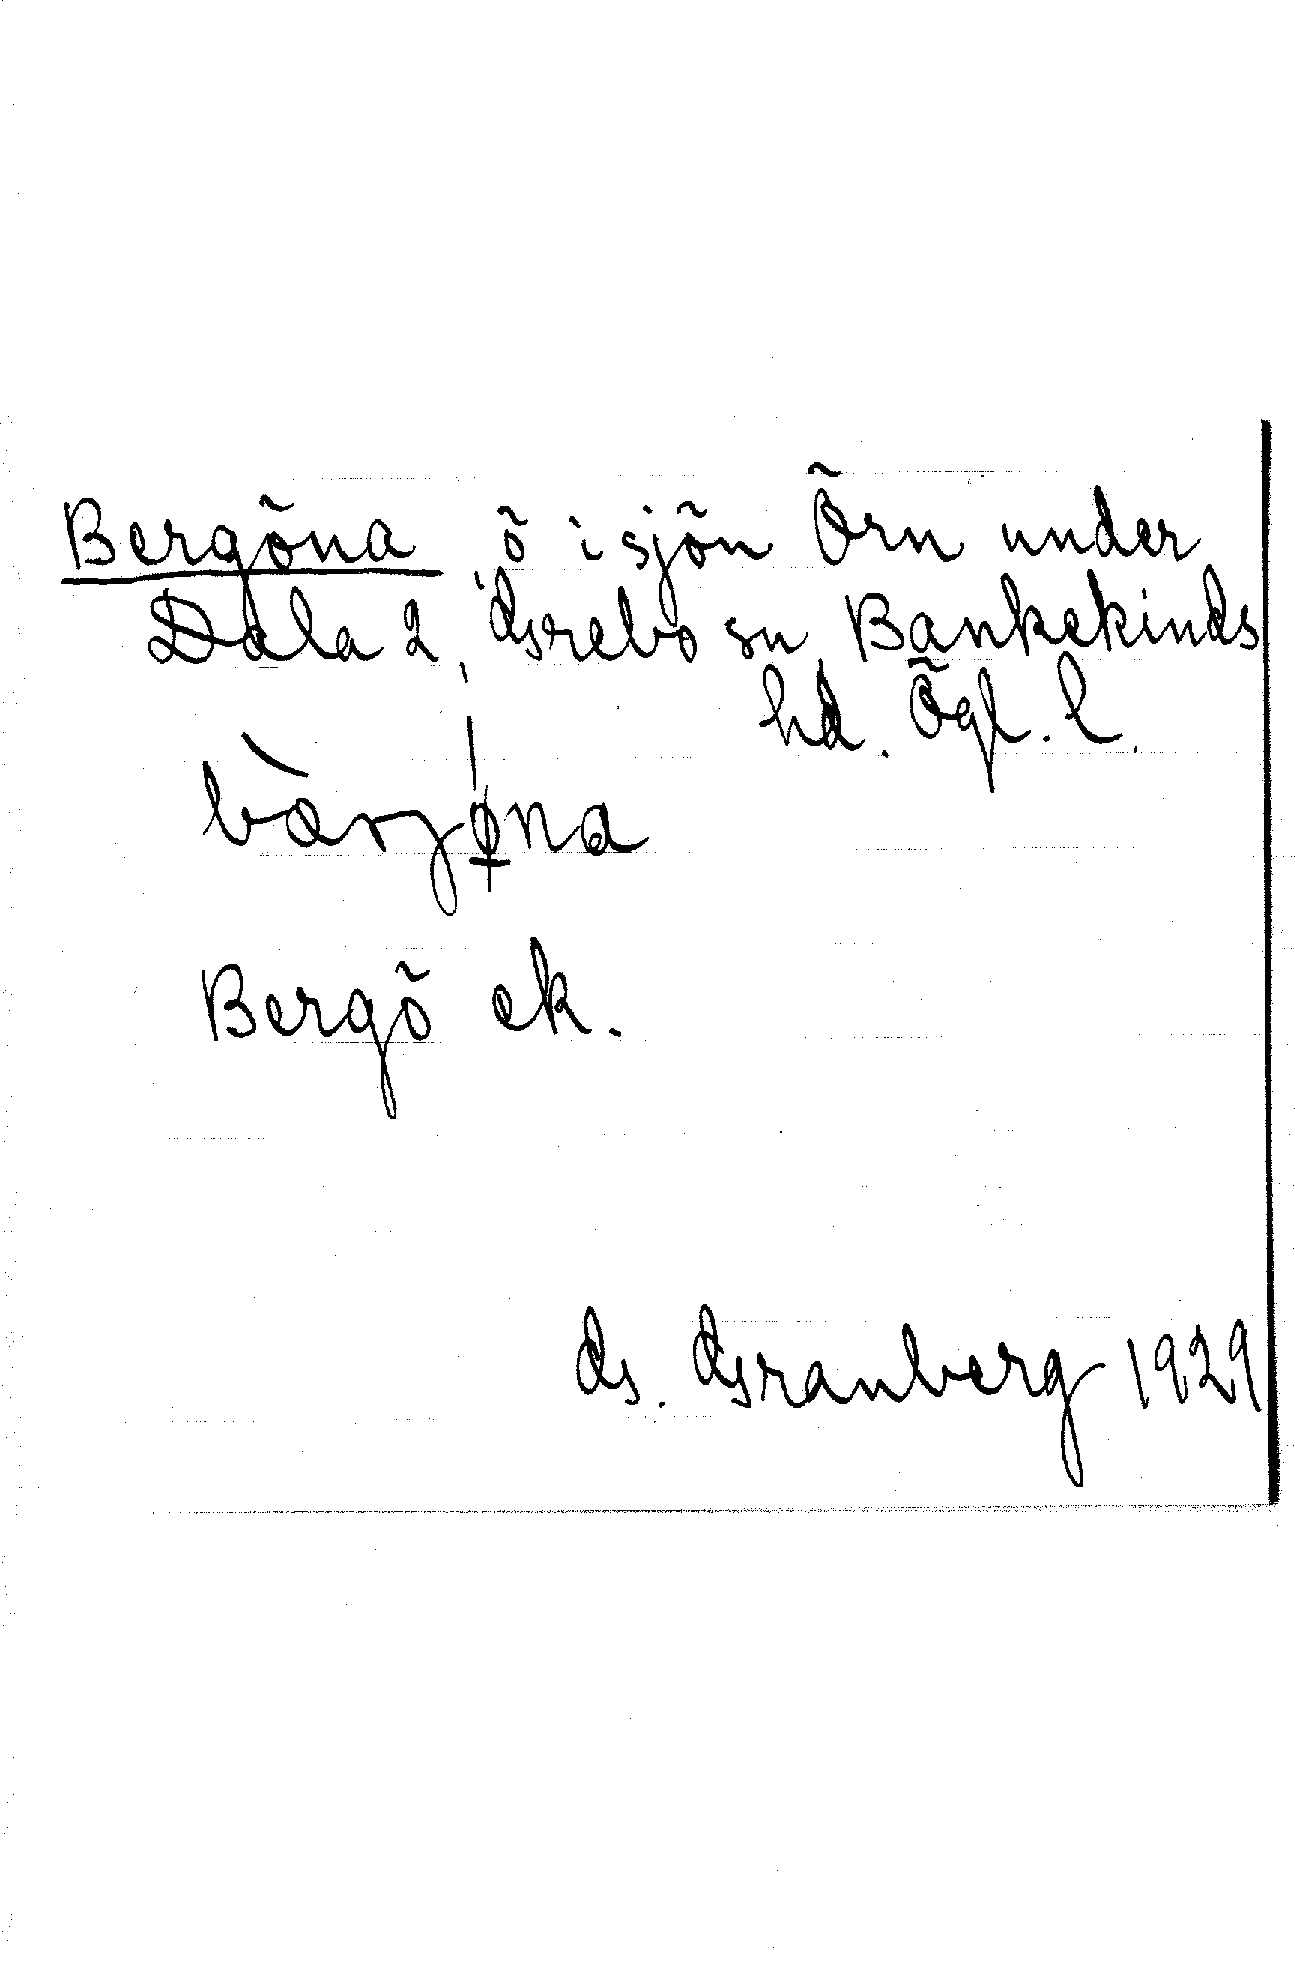 Bergöna, ö i sjön Örn under
Dala 2, Grebo sn, Bankekinds
hd. Ögl. l.
bàrjøna
Bergö ek.
G. Granberg 1929